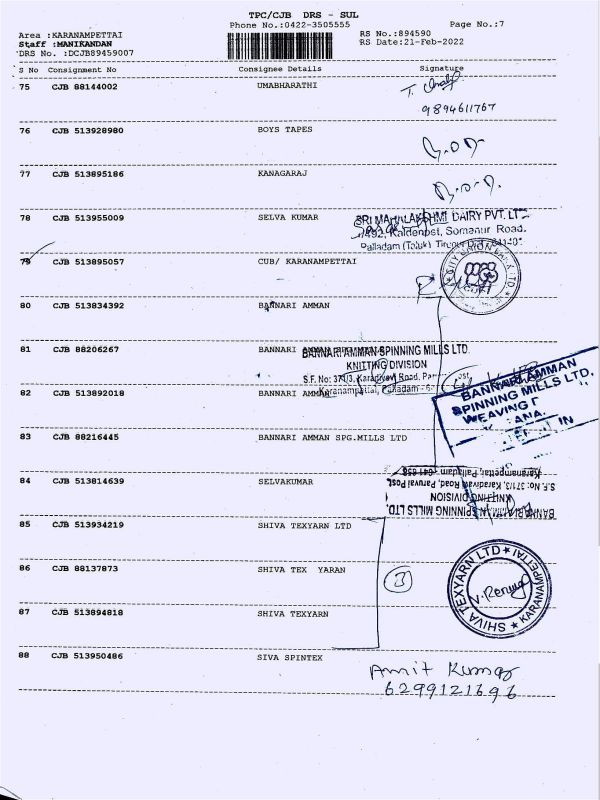 TPC/CJB DRS - SUL
Phone No.:0422-3505555 Page No.:7
Area :KARANAMPETTAI RS No.:894590
Staff :MANIKANDAN RS Date:21-Feb-2022
DRS No. :DCJB89459007
S No Consignment No Consignee Details Signature
75 CJB 88144002 UMABHARATHI
9894611767
76 CJB 513928980 BOYS TAPES
77 CJB 513895186 KANAGARAJ
78 CJB 513955009 SELVA KUMAR SRI MAHALAKSHMI DAIRY PVT. LTD
Somanur Road.
Palladam (Taluk)
79 CJB 513895057 CUB/ KARANAMPETTAI
CITY UNION BANK LTD
80 CJB 513834392 BANNARI AMMAN
81 CJB 88206267 BANNARI
BANNARI AMMAN SPINNING MILLS LTD.
KNITTING DIVISION
S.F. No: 371/3, Karadivavi Road,
Karanampettai, Palladam
82 CJB 513892018 BANNARI AMMAN
BANNARI AMMAN
SPINNING MILLS LTD.
WEAVING
83 CJB 88216445 BANNARI AMMAN SPG.MILLS LTD
84 CJB 513814639 SELVAKUMAR
Karanampettai, Palladam - 641 658
S.F. No: 371/3, Karadivavi Road, Paruvai Post,
KNITTING DIVISION
BANNARI AMMAN SPINNING MILLS LTD.
85 CJB 513934219 SHIVA TEXYARN LTD
86 CJB 88137873 SHIVA TEX YARAN 3
SHIVA TEXYARN LTD KARANAMPETTAI
87 CJB 513894818 SHIVA TEXYARN
88 CJB 513950486 SIVA SPINTEX Amit Kumar
6299121696